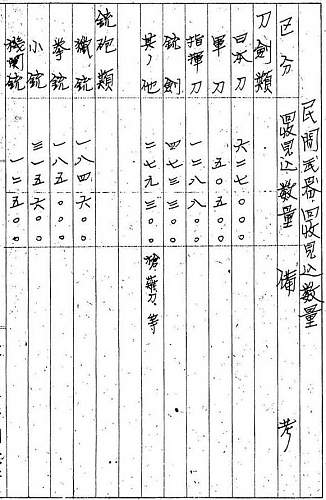 民間武器回收見込数量
区分 回收見込数量 備考
刀劍類
日本刀 六二七〇〇〇
軍刀 五〇五〇〇
指揮刀 一二八八〇
銃劍 四七三三〇
其ノ他 二七九三〇〇 槍、薙刀、等
銃砲類
獵銃 一八四六〇
拳銃 一八五〇〇
小銃 三一五六〇
機関銃 一二五〇〇